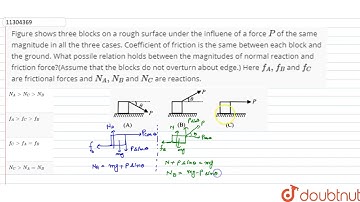 11304369
Figure shows three blocks on a rough surface under the influene of a force P of the same
magnitude in all the three cases. Coefficient of friction is the same between each block and
the ground. What possile relation holds between the magnitudes of normal reaction and
friction force?(Assume that the blocks do not overturn about edge.) Here f_A, f_B and f_C
are frictional forces and N_A, N_B and N_C are reactions.
N_A > N_C > N_B
f_A > f_C > f_B
f_C > f_A = f_B
N_C > N_A = N_B
P
θ
P
θ
P
(A)
(B)
(C)
N_A
Pcosθ
f_A
mg
Psinθ
N_A = mg + Psinθ
N
Psinθ
P
mg
N + Psinθ = mg
N_B = mg - Psinθ
doubtnut